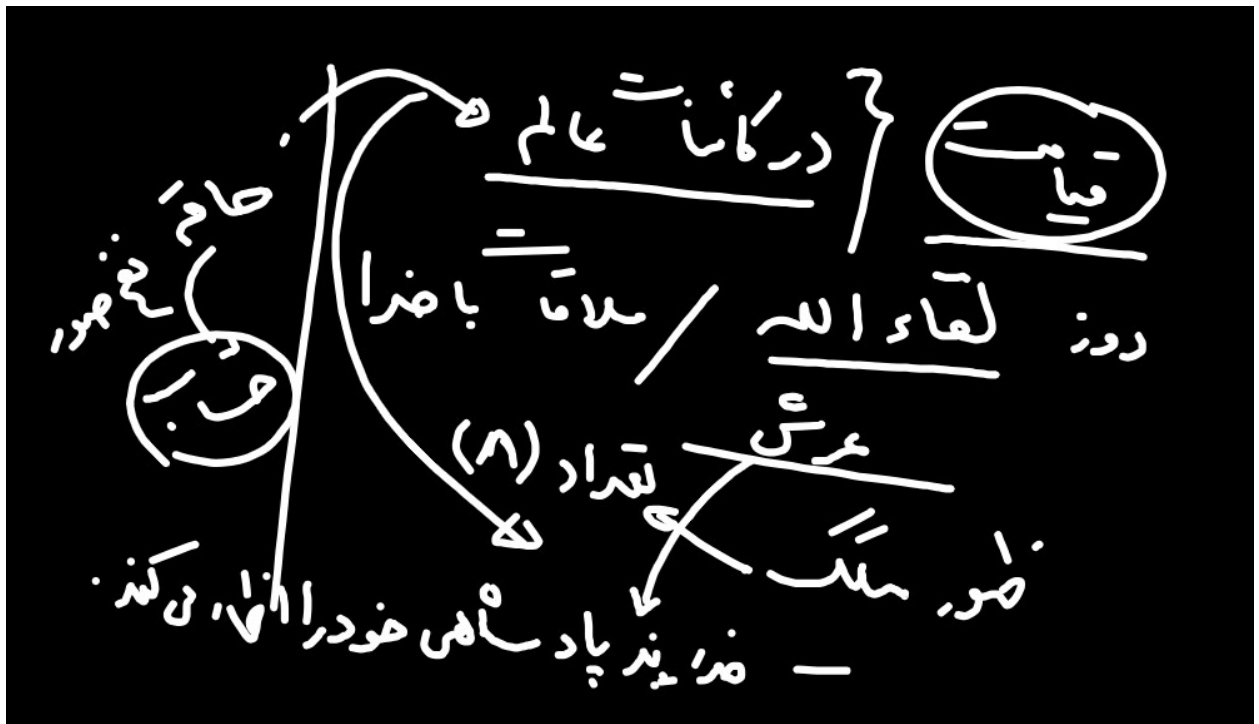 قیامت
در کائنات عالم
روز لقاء الله / ملاقات با خدا
عرش
تعداد (۸)
ظهور ملک
— خداوند پادشاهی خود را اظهار می کند.
خاتم